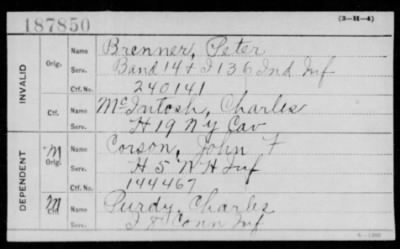 187850
(3-H-4)
INVALID
Orig.
Name Brenner, Peter
Serv. Band 14 & I 136 Ind Inf
Ctf. No. 240141
Ctf.
Name McIntosh, Charles
Serv. H 19 N Y Cav
DEPENDENT
M
Orig.
Name Corson, John F
Serv. H 5 N H Inf
Ctf. No. 144467
M
Ctf.
Name Purdy, Charles
Serv. I 8 Conn Inf